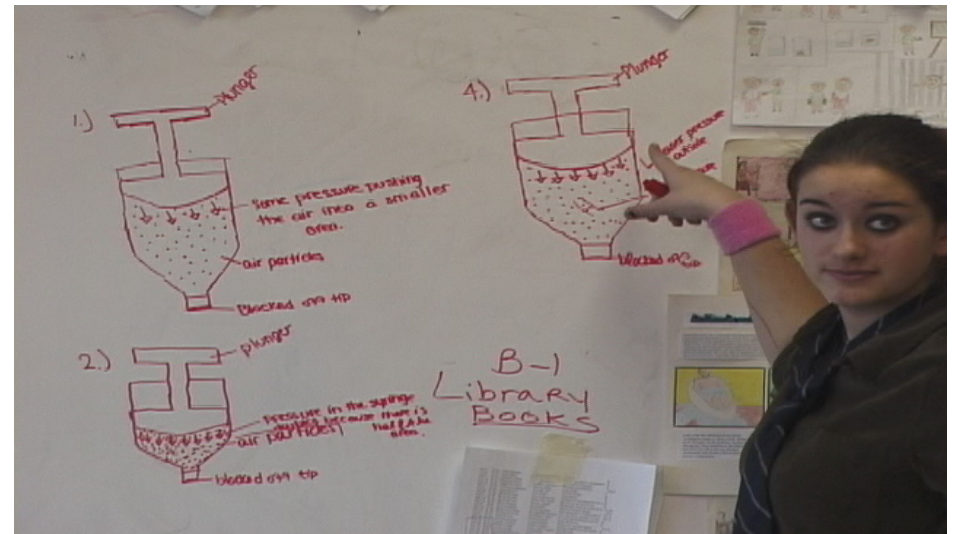 1.)
plunger
Some pressure pushing
the air into a smaller
area.
air particles
Blocked off tip
2.)
plunger
Pressure in the syringe
because there is
half the
air particles
area.
blocked off tip
4.)
Plunger
pressure
outside
blocked off tip
B-1
Library
Books